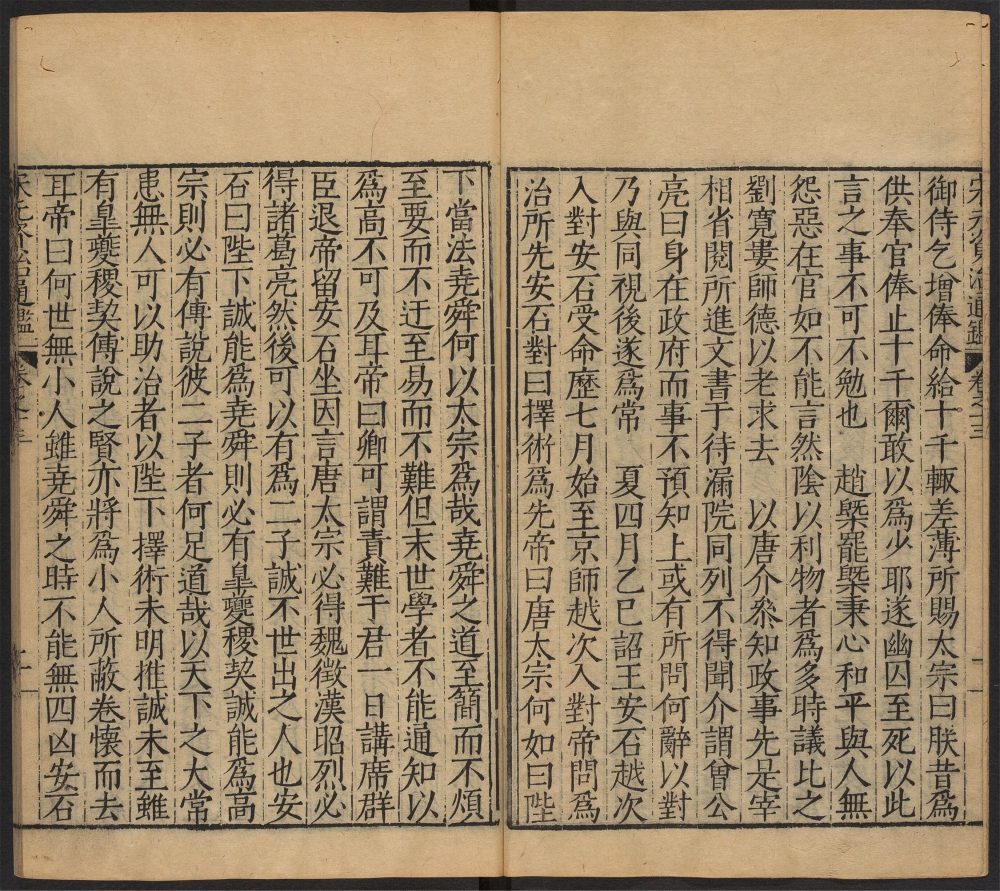 宋元資治通鑑 卷之三
御侍乞增俸命給十千輙差薄所賜太宗曰朕昔爲
供奉官俸止十千爾敢以爲少耶遂幽囚至死以此
言之事不可不勉也 趙槩罷槩秉心和平與人無
怨惡在官如不能言然陰以利物者爲多時議比之
劉寬婁師德以老求去 以唐介叅知政事先是宰
相省閱所進文書于待漏院同列不得聞介謂曾公
亮曰身在政府而事不預知上或有所問何辭以對
乃與同視後遂爲常 夏四月乙巳詔王安石越次
入對安石受命歷七月始至京師越次入對帝問爲
治所先安石對曰擇術爲先帝曰唐太宗何如曰陛
下當法堯舜何以太宗爲哉堯舜之道至簡而不煩
至要而不迂至易而不難但末世學者不能通知以
爲高不可及耳帝曰卿可謂責難于君一日講席群
臣退帝留安石坐因言唐太宗必得魏徵漢昭烈必
得諸葛亮然後可以有爲二子誠不世出之人也安
石曰陛下誠能爲堯舜則必有皐夔稷契誠能爲高
宗則必有傅說彼二子者何足道哉以天下之大常
患無人可以助治者以陛下擇術未明推誠未至雖
有皐夔稷契傅說之賢亦將爲小人所蔽卷懷而去
耳帝曰何世無小人雖堯舜之時不能無四凶安石
宋元資治通鑑 卷之三